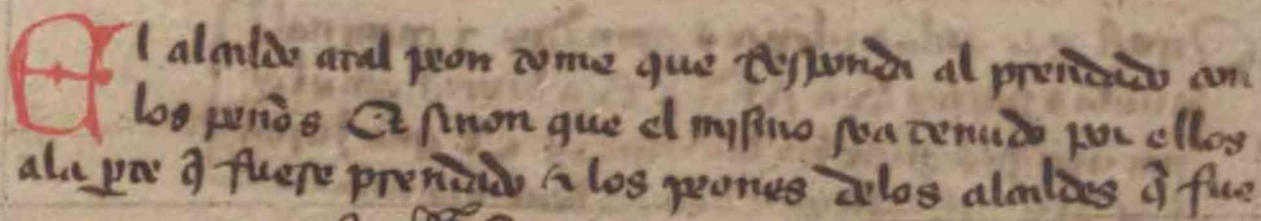 El alcalde atal peon tome que Responda al prendado con
los peños Et sinon que el mismo sea tenudo por ellos
ala parte q̃ fuese prendado ⁊ los peones delos alcaldes q̃ fue